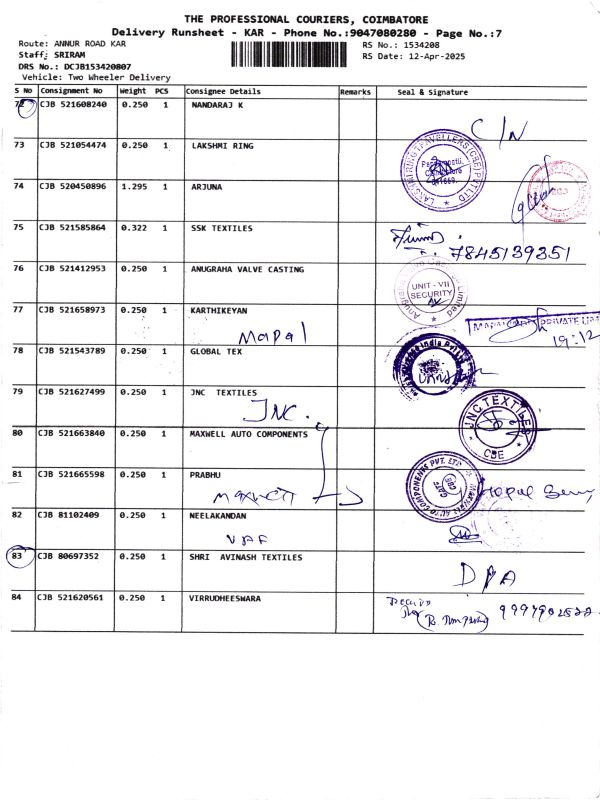 THE PROFESSIONAL COURIERS, COIMBATORE
Delivery Runsheet - KAR - Phone No.:9047080280 - Page No.:7
Route: ANNUR ROAD KAR
Staff: SRIRAM
DRS No.: DCJB153420807
Vehicle: Two Wheeler Delivery
RS No.: 1534208
RS Date: 12-Apr-2025
S No Consignment No Weight PCS Consignee Details Remarks Seal & Signature
72 CJB 521608240 0.250 1 NANDARAJ K
C/N
73 CJB 521054474 0.250 1 LAKSHMI RING
74 CJB 520450896 1.295 1 ARJUNA
75 CJB 521585864 0.322 1 SSK TEXTILES
7845139351
76 CJB 521412953 0.250 1 ANUGRAHA VALVE CASTING
UNIT - VII
SECURITY
77 CJB 521658973 0.250 1 KARTHIKEYAN
Mapal
19:12
78 CJB 521543789 0.250 1 GLOBAL TEX
79 CJB 521627499 0.250 1 JNC TEXTILES
JNC.
JNC TEXTILES
CBE
80 CJB 521663840 0.250 1 MAXWELL AUTO COMPONENTS
81 CJB 521665598 0.250 1 PRABHU
82 CJB 81102409 0.250 1 NEELAKANDAN
83 CJB 80697352 0.250 1 SHRI AVINASH TEXTILES
DPA
84 CJB 521620561 0.250 1 VIRRUDHEESWARA